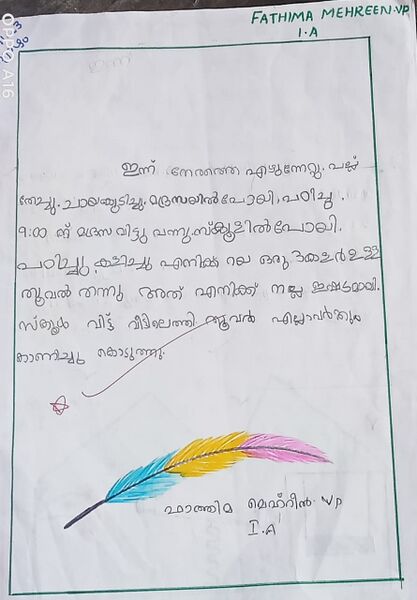 FATHIMA MEHREEN.VP
I.A
OPPO A16
ഇന്ന്
ഇന്ന് നേരത്തെ എഴുന്നേറ്റു. പല്ല്
തേച്ചു. ചായകുടിച്ചു. മദ്രസയിൽപോയി, പഠിച്ചു.
9:00 ന് മദ്രസ വിട്ടു വന്നു. സ്കൂളിൽപോയി.
പഠിച്ചു കളിച്ചു എനിക്ക് ഒരു 3കളർ ഉള്ള
തൂവൽ തന്നു അത് എനിക്ക് നല്ല ഇഷ്ടമായി.
സ്കൂൾ വിട്ട് വീട്ടിലെത്തി തൂവൽ എല്ലാവർക്കും
കാണിച്ചു കൊടുത്തു.
ഫാത്തിമ മെഹ്റിൻ. vp
I.A